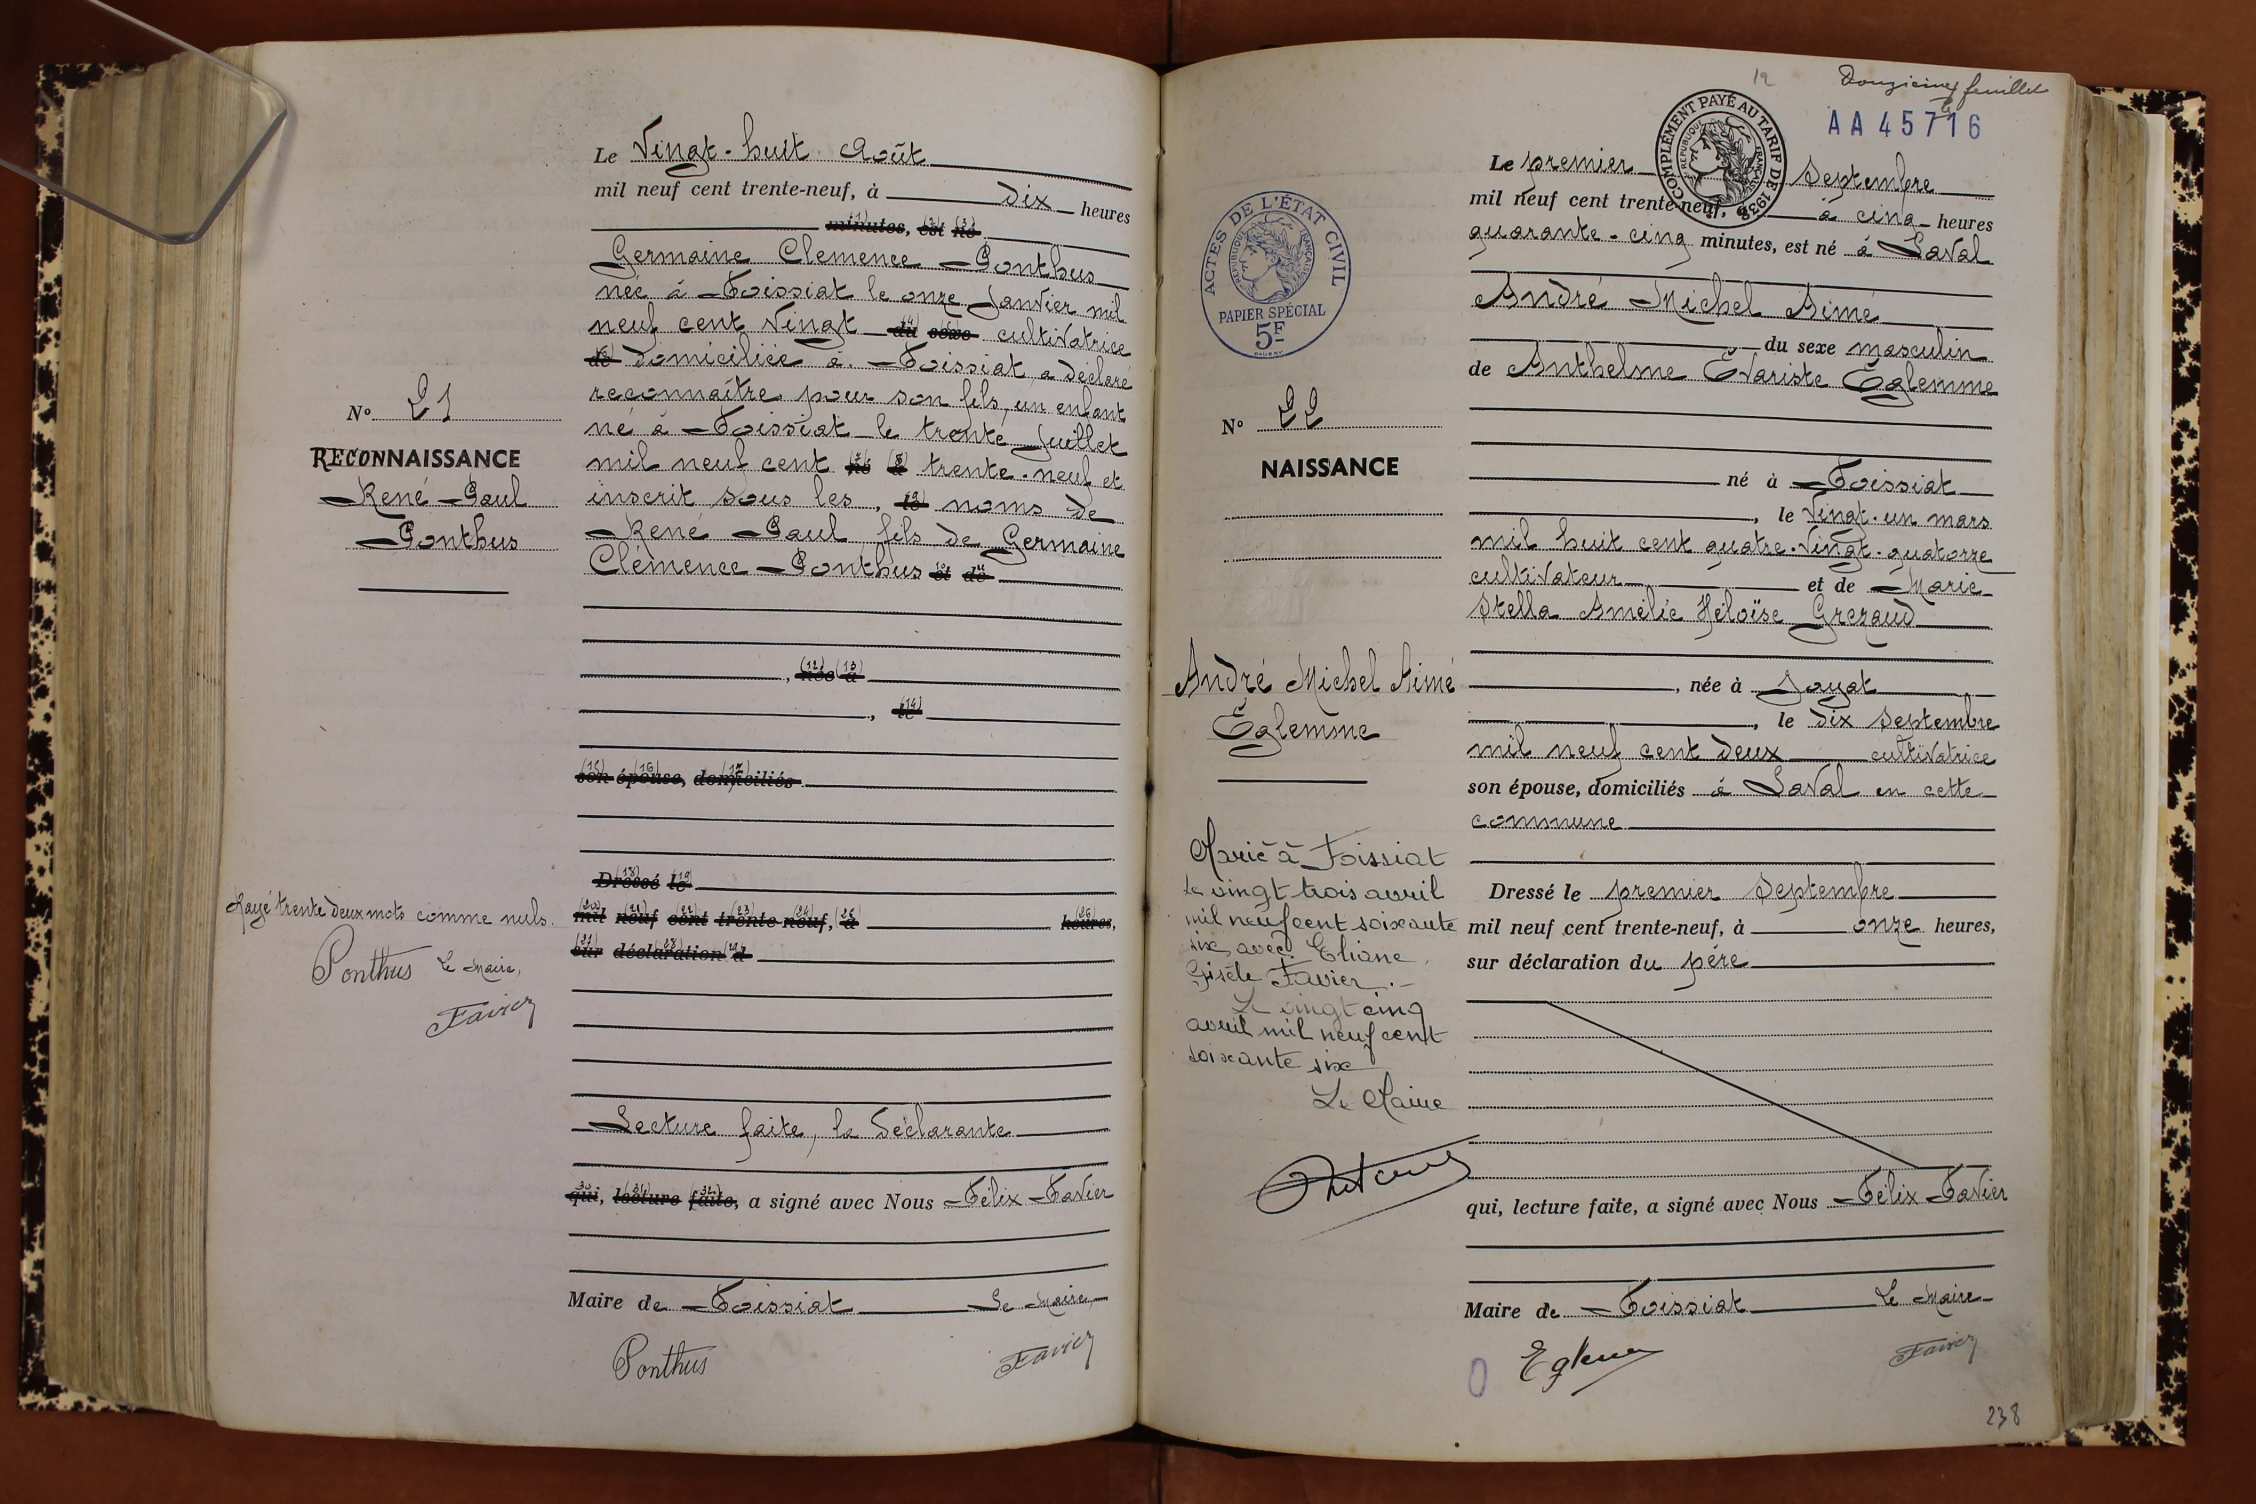 Le Vingt-huit Août
mil neuf cent trente-neuf, à dix heures
minutes, est né
Germaine Clemence Ponthus
née à Foissiat le onze Janvier mil
neuf cent Vingt du sexe cultivatrice
de domiciliée à Foissiat, a déclaré
reconnaître pour son fils, un enfant
né à Foissiat le trente Juillet
mil neuf cent né à trente-neuf et
inscrit sous les, le noms de
René Paul fils de Germaine
Clémence Ponthus et de
, née à
, le
son épouse, domiciliés
Dressé le
mil neuf cent trente-neuf, à heures,
sur déclaration d
Lecture faite, la déclarante
qui, lecture faite, a signé avec Nous Félix Favier
Maire de Foissiat Le Maire,
Ponthus Favier
N° 21
RECONNAISSANCE
René Paul
Ponthus
Rayé trente deux mots comme nuls.
Ponthus Le Maire,
Favier
12 Douzième feuillet
AA 45716
COMPLÉMENT PAYÉ AU TARIF DE 1938
RÉPUBLIQUE FRANÇAISE
Le premier Septembre
mil neuf cent trente-neuf, à cinq heures
quarante-cinq minutes, est né à Laval
André Michel Aimé
du sexe masculin
de Anthelme Evariste Eglemme
né à Foissiat
, le Vingt-un mars
mil huit cent quatre-Vingt-quatorze
cultivateur et de Marie
Stella Amélie Héloïse Grezaud
, née à Jayat
, le dix Septembre
mil neuf cent deux cultivatrice
son épouse, domiciliés à Laval en cette
commune
Dressé le premier Septembre
mil neuf cent trente-neuf, à onze heures,
sur déclaration du père
qui, lecture faite, a signé avec Nous Félix Favier
Maire de Foissiat Le Maire
Favier
238
ACTES DE L'ÉTAT CIVIL
RÉPUBLIQUE FRANÇAISE
PAPIER SPÉCIAL
5F
N° 22
NAISSANCE
André Michel Aimé
Eglemme
Marié à Foissiat
le vingt trois avril
mil neuf cent soixante
six avec Eliane
Gisèle Favier.-
Le vingt cinq
avril mil neuf cent
soixante six
Le Maire